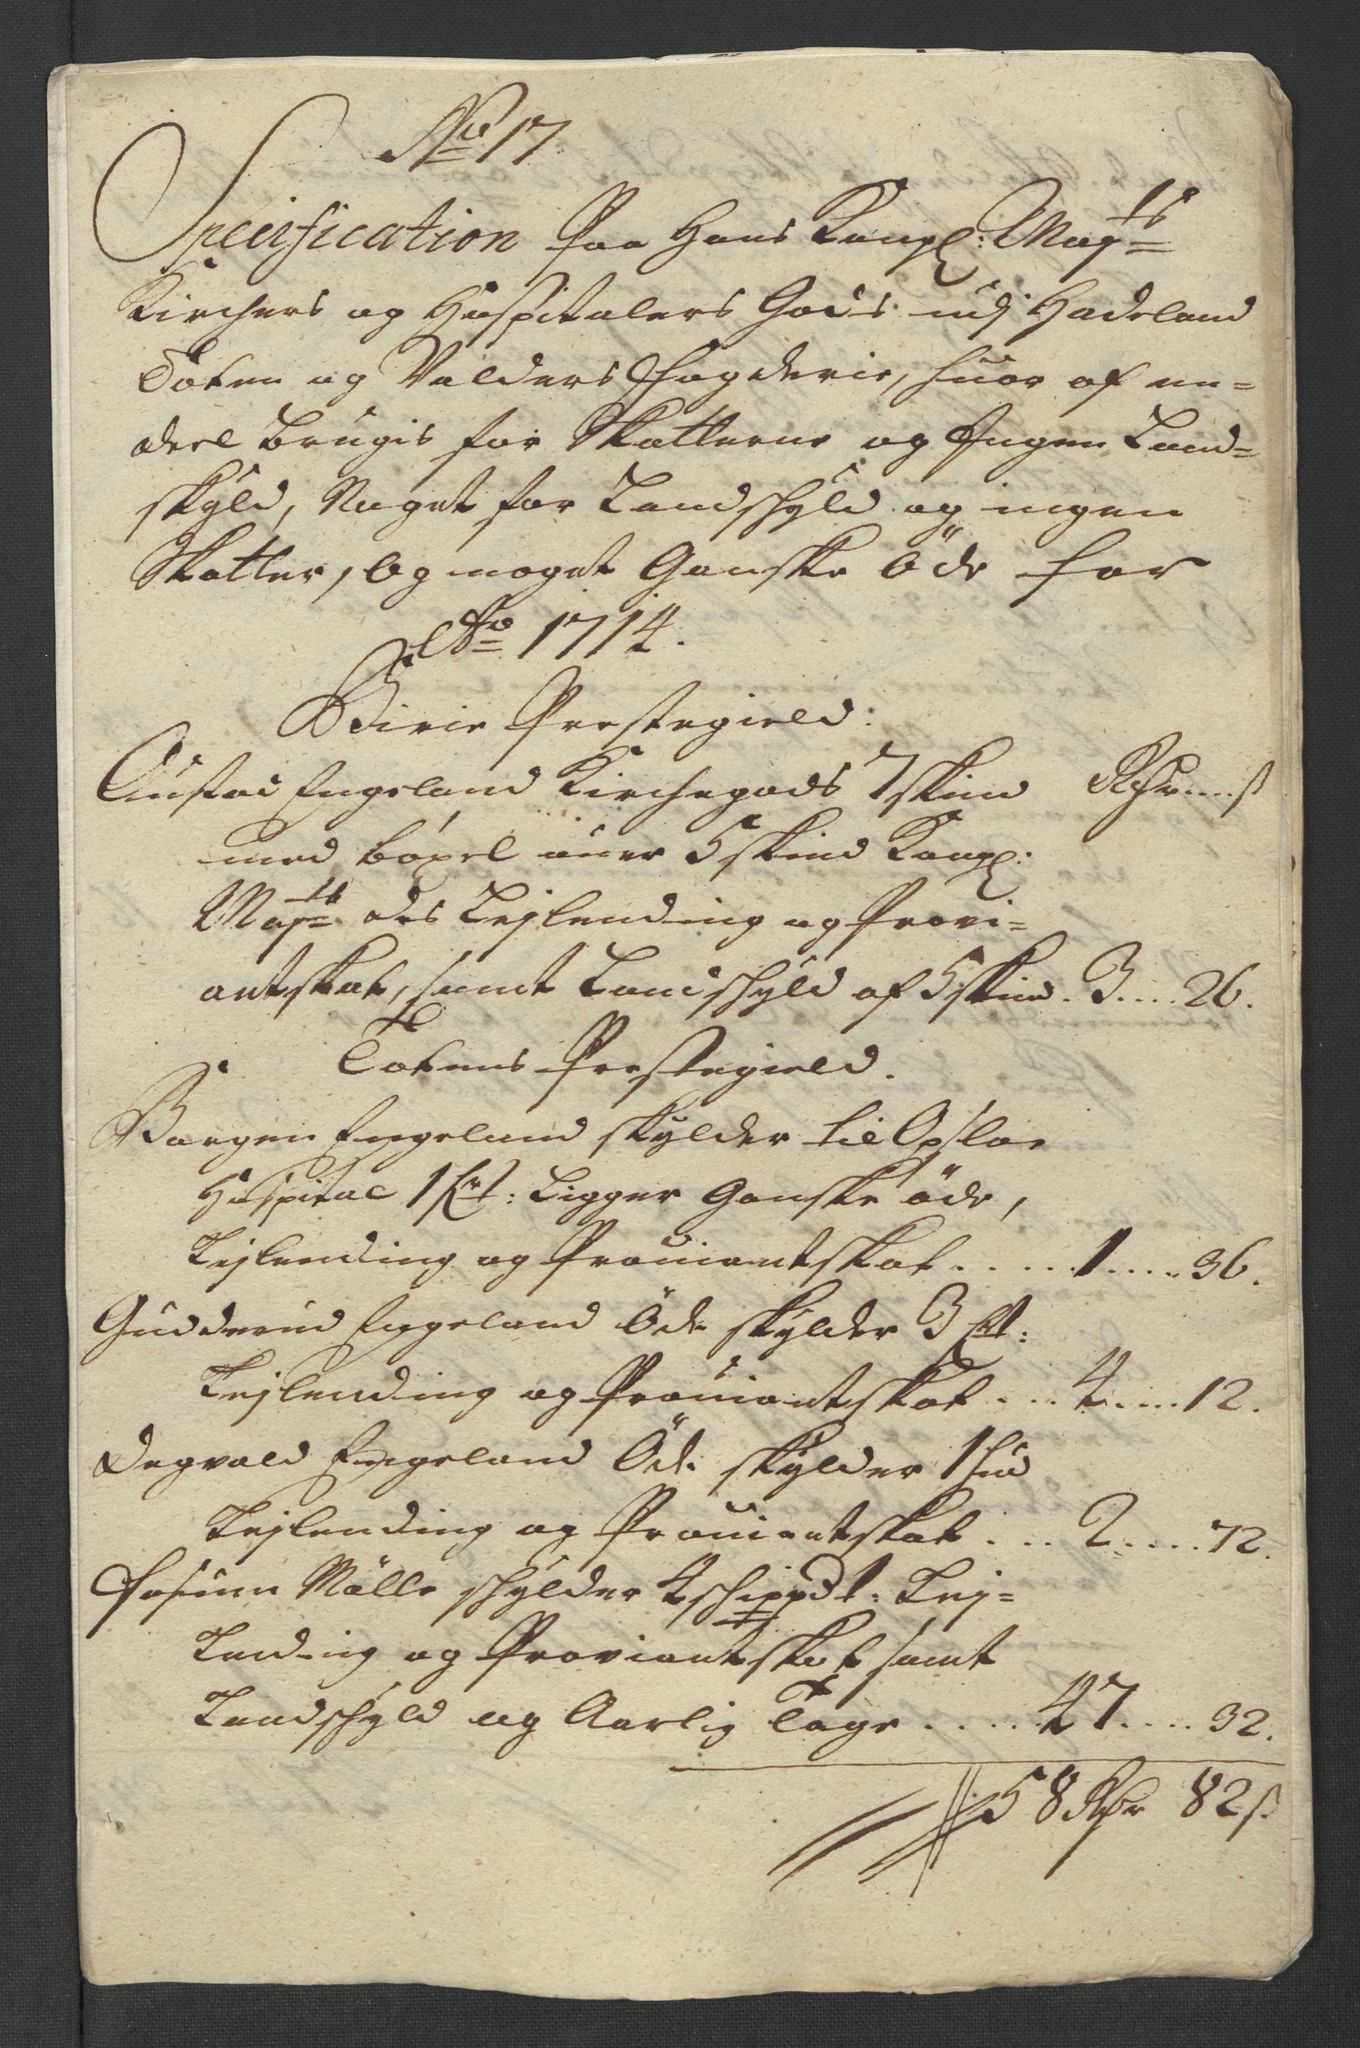 No 17.
Specification Paa Hans Kongl: Mayts
Kirchers og Hospitalers Gods udj Hadeland
Toten og Valders Fogderie, huor af en=
deel brugis for Skatterne og Ingen Land=
skyld, Noget for Landschyld og ingen
Skatter, og noget Ganske öde for
Ao 1714.
Birie Prestegield:
Austad Engeland Kirchegods 7 skind Rdr....ß
med böxel ouer 5 skind Kongl:
Mayts des Lejlending og Provi=
antskat, samt Landschyld af 5 skind. 3....26.
Totens Prestegield.
Bargen Engeland skylder til Opsloe
Hospital 1 Fr: Ligger Ganske öde,
Lejlending og Prouiantskat.....1.....36.
Gudderud Engeland Öde skylder 3
Lejlending og Prouiantskat...4.....12.
Degvald Engeland Öde skylder 1 hud
Lejlending og Prouiantskat...2.....72.
Fossum Mölle schylder 4 schippdt: Lej=
Lending og Proviantskat samt
Landschyld og Aarlig Tage.....47....32.
58 Rdr 82 ß